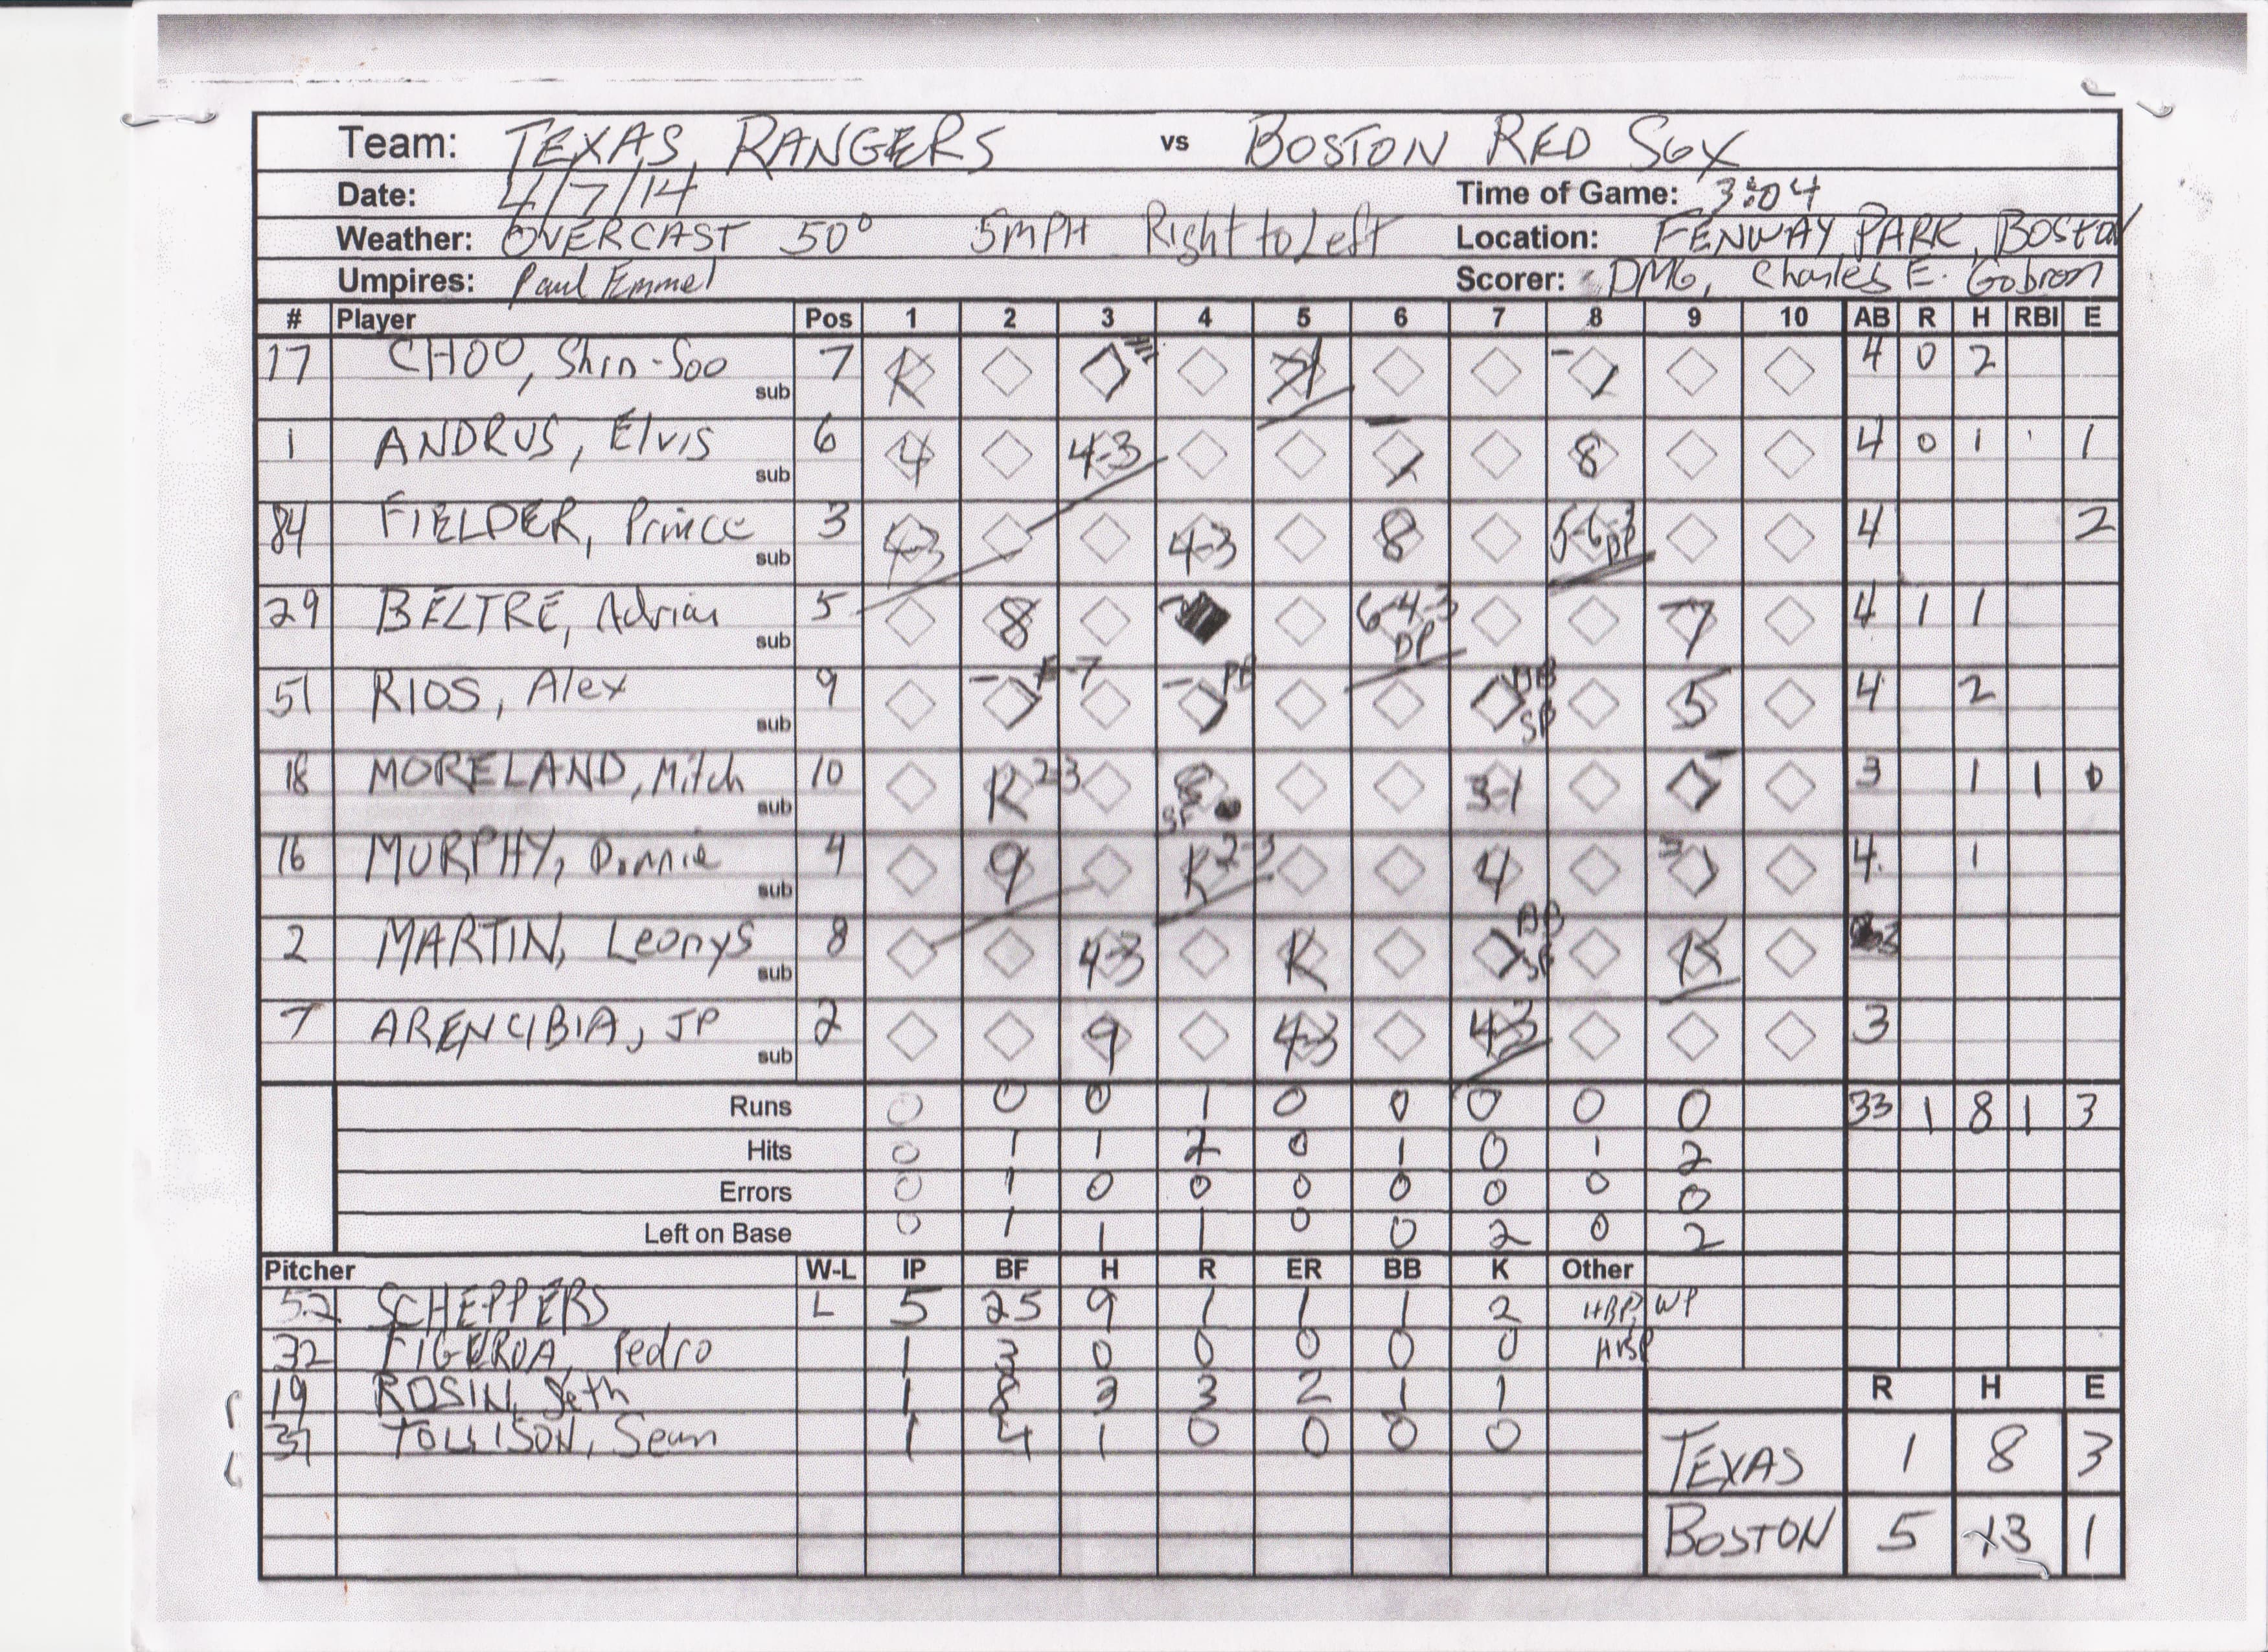 Team: TEXAS RANGERS vs BOSTON RED SOX
Date: 4/7/14 Time of Game: 3:04
Weather: OVERCAST 50° 5MPH Right to Left Location: FENWAY PARK, BOSTON
Umpires: Paul Emmel Scorer: DMG, Charles E. Gobron
# Player Pos 1 2 3 4 5 6 7 8 9 10 AB R H RBI E
17 CHOO, Shin-Soo 7 K 4 0 2
sub
1 ANDRUS, Elvis 6 4 4-3 8 4 0 1 1
sub
84 FIELDER, Prince 3 4-3 4-3 8 5-6-3 DP 4 2
sub
29 BELTRE, Adrian 5 8 6-4-3 DP 7 4 1 1
sub
51 RIOS, Alex 9 E-7 PB BB SB 5 4 2
sub
18 MORELAND, Mitch 10 K 2-3 SF 3-1 3 1 1 0
sub
16 MURPHY, Donnie 4 9 K 2-3 4 4 1
sub
2 MARTIN, Leonys 8 4-3 K BB SB K 3
sub
7 ARENCIBIA, JP 2 9 4-3 4-3 3
sub
Runs 0 0 0 1 0 0 0 0 0 33 1 8 1 3
Hits 0 1 1 2 0 1 0 1 2
Errors 0 1 0 0 0 0 0 0 0
Left on Base 0 1 1 1 0 0 2 0 2
Pitcher W-L IP BF H R ER BB K Other
52 SCHEPPERS L 5 25 9 1 1 1 2 HBP, WP
32 FIGUEROA, Pedro 1 3 0 0 0 0 0 HBP
19 ROSIN, Seth 1 8 3 3 2 1 1
37 TOLLISON, Sean 1 4 1 0 0 0 0
R H E
TEXAS 1 8 3
BOSTON 5 13 1